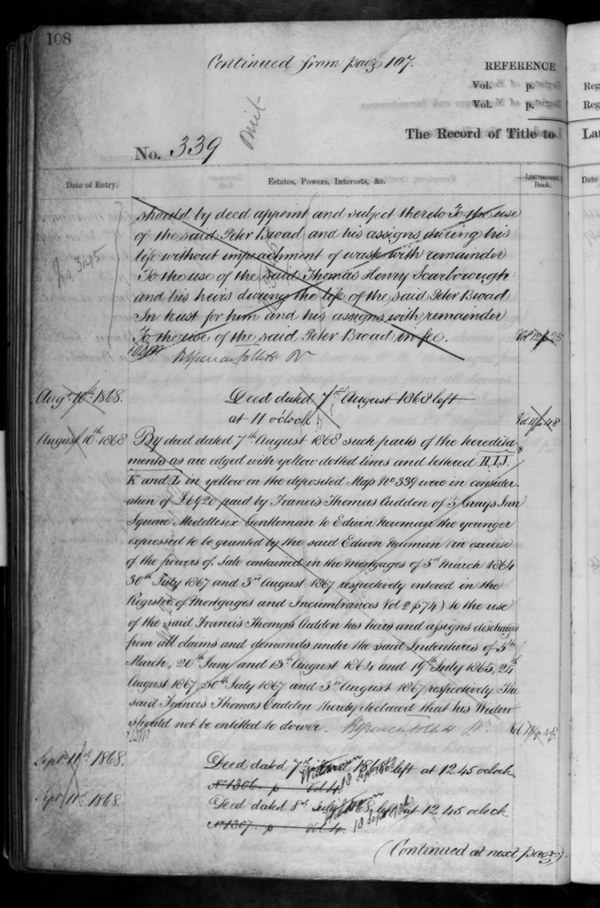 108
Continued from page 107.
REFERENCE
Vol. p.
Vol. p.
Reg
Reg
No. 339
Omit
The Record of Title to
Lan
Date of Entry.
Estates, Powers, Interests, &c.
Instrument Book.
Date
should by deed appoint and subject thereto To the use
of the said Peter Broad and his assigns during his
life without impeachment of waste with remainder
To the use of the said Thomas Henry Scarborough
and his heirs during the life of the said Peter Broad
In trust for him and his assigns with remainder
To the use of the said Peter Broad in fee.
No. 3145
Augt 10th 1868.
Deed dated 7th August 1868 left
at 11 o'clock
August 10th 1868
By deed dated 7th August 1868 such parts of the heredita-
ments as are edged with yellow dotted lines and lettered H.I.J.
K and L in yellow on the deposited Map No 339 were in consider-
ation of £6920 paid by Francis Thomas Cuddon of 5 Grays Inn
Square Middlesex Gentleman to Edwin Newman the younger
expressed to be granted by the said Edwin Newman (in exercise
of the powers of Sale contained in the Mortgages of 5th March 1864
30th July 1867 and 3rd August 1867 respectively entered in the
Register of Mortgages and Incumbrances Vol 2 p 74) to the use
of the said Francis Thomas Cuddon his heirs and assigns discharged
from all claims and demands under the said Indentures of 5th
March, 20th June and 13th August 1864 and 19th July 1865, 24th
August 1867 30th July 1867 and 3rd August 1867 respectively. The
said Francis Thomas Cuddon thereby declared that his Widow
should not be entitled to dower.
Sept. 11th 1868.
Deed dated 7th 1868 left at 12.45 oclock
No 1306. p Vol 4
Sept. 11th 1868.
Deed dated 8th July 1868 left at 12.45 oclock
No 1307. p Vol 4.
(Continued at next page).